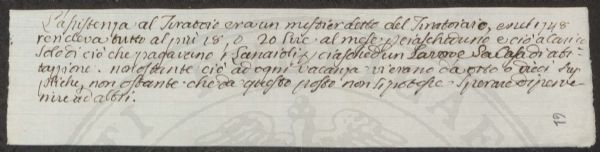 L'assistenza al Tiratoio era un mestier detto del Tiratoiaio, e nel 1748
rendeva tutto al più 18, o 20 lire al mese p ciascheduno e ciò a carico
solo di ciò che pagavano i Lanaioli p ciascheduna
tazione. nonostante ciò ad ogni vacanza vi erano da otto o dieci sup
pliche, non ostante che da questo posto non si potesse sperare di perve
nire ad altri.
19